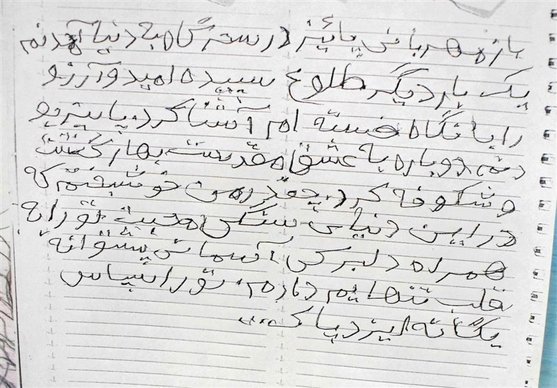 باز مهربانی پائیز در سحرگاه به دنیا آمدنم
یک بار دیگر طلوع سپیده امید و آرزو
را با نگاه خسته ام آشنا کرد، پاییز بود
دلم دوباره به عشق مقدست بهار گشت
و شکوفه کرد، چقدر من خوشبختم که
در این دنیای سنگی محبت تو را به
همراه دلبرکی آسمانی پشتوانه
قلب تنهایم دارم، تو را سپاس
یگانه ایزد پاک....